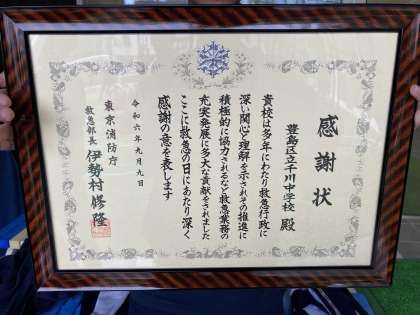 感謝状
豊島区立千川中学校 殿
貴校は多年にわたり救急行政に
深い関心と理解を示されその推進に
積極的に協力されるなど救急業務の
充実発展に多大な貢献をされました
ここに救急の日にあたり深く
感謝の意を表します
令和六年九月九日
東京消防庁
救急部長 伊勢村修隆